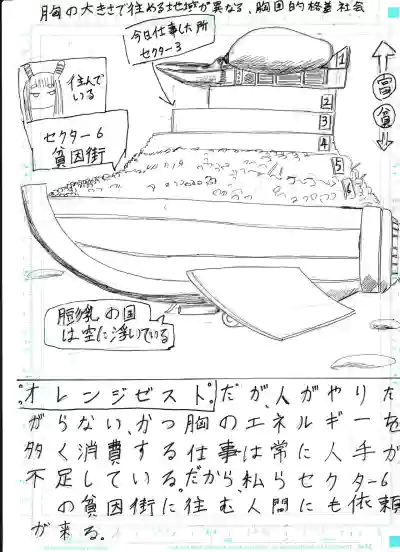 胸の大きさで住める地域が異なる、胸囲的格差社会
今日仕事した所
セクター3
住んで
いる
セクター6
貧困街
1
2
3
4
5
6
富
貧
の国
は空に浮いている
オレンジゼスト。だが、人がやりた
がらない、かつ胸のエネルギーを
多く消費する仕事は常に人手が
不足している。だから、私らセクター6
の貧困街に住む、人間にも依頼
が来る。